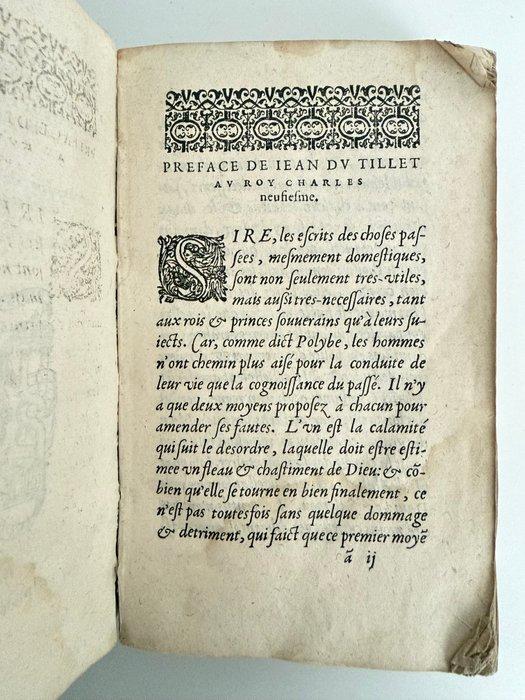 PREFACE DE IEAN DV TILLET
AV ROY CHARLES
neufiesme.
SIRE, les escrits des choses pas-
sees, mesmement domestiques,
sont non seulement tres-vtiles,
mais aussi tres-necessaires, tant
aux rois & princes souuerains qu'à leurs su-
iects. Car, comme dict Polybe, les hommes
n'ont chemin plus aisé pour la conduite de
leur vie que la cognoissance du passé. Il n'y
a que deux moyens proposez à chacun pour
amender ses fautes. L'vn est la calamité
qui suit le desordre, laquelle doit estre esti-
mee vn fleau & chastiment de Dieu: & cõ-
bien qu'elle se tourne en bien finalement, ce
n'est pas toutesfois sans quelque dommage
& detriment, qui faict que ce premier moyẽ
ã ij